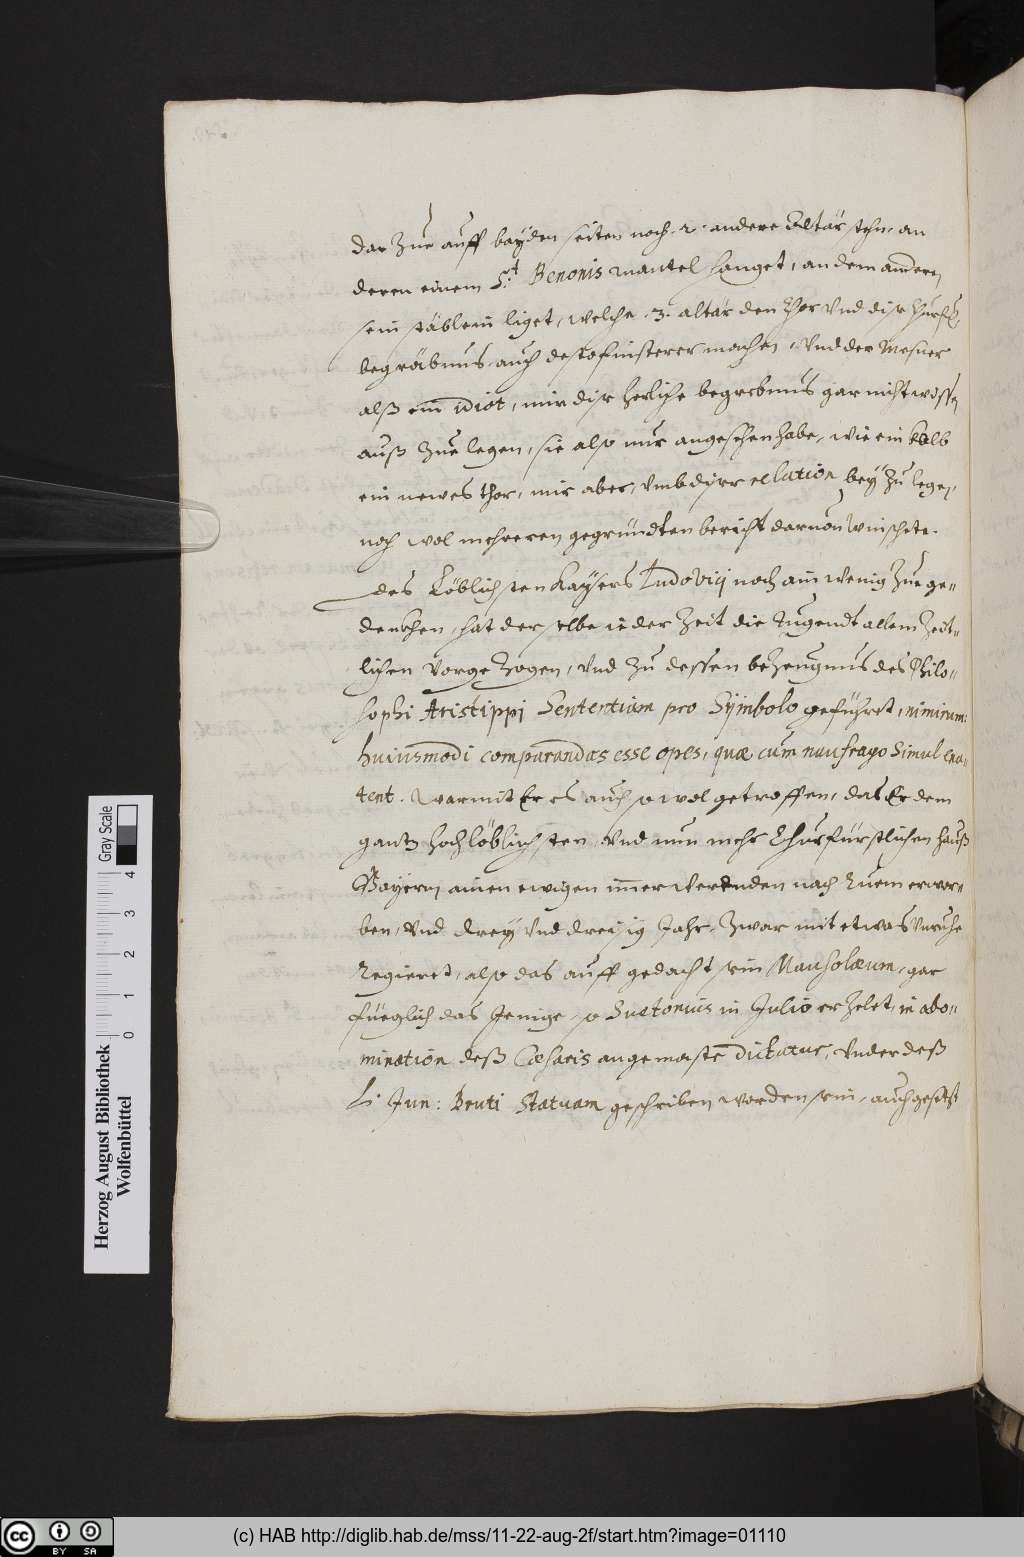 dar Zue auff bayden seiten noch .2. andere Altär stehn, an
deren einem St. Benonis mantel hanget, an dem anderen
sein stäblein liget, welche .3. altär den Chor vnd dise
begräbnus auch desto finsterer machen, vnd der Mesner
alß ein idiot, mir dise herliche begrebnus gar nicht wissen
auß Zue legen, sie also nur angesehen habe, wie ein kalb
ein newes thor, mir aber, vmb diser relation bey Zu legen,
noch wol mehreren gegründten bericht daruon winschete.
des Löblichsten Kaysers Ludovici noch ain wenig Zue ge-
denckhen, hat derselbe ieder Zeit die Tugendt allem Zeit-
lichen vorgeZogen, vnd Zu dessen beZeugnus des Philo-
sophi Aristippi Sententiam pro Symbolo geführt, nimirum:
huiusmodi comparandas esse opes, quæ cum naufrago simul ena-
tent. warmit Er es auch so wol getroffen, das Er dem
gantz hochlöblichsten vnd nun mehr Churfürstlichen hauß
Bayern ainen ewigen immerwerenden nach Ruem erwor-
ben, vnd drey vnd dreisig Jahr, Zwar mit etwas vnruhe
Regieret, also das auff gedacht sein Mausolæum, gar
füeglich das Jenige, so Suetonius in Julio erZelet, in abo-
mination deß Cæsaris angemaste dictatur, vnder deß
L. Jun: Bruti Statuam geschriben worden sein, auch gesetzt
Herzog August Bibliothek
Wolfenbüttel
0 1 2 3 4
Gray Scale
cc BY SA
(c) HAB http://diglib.hab.de/mss/11-22-aug-2f/start.htm?image=01110